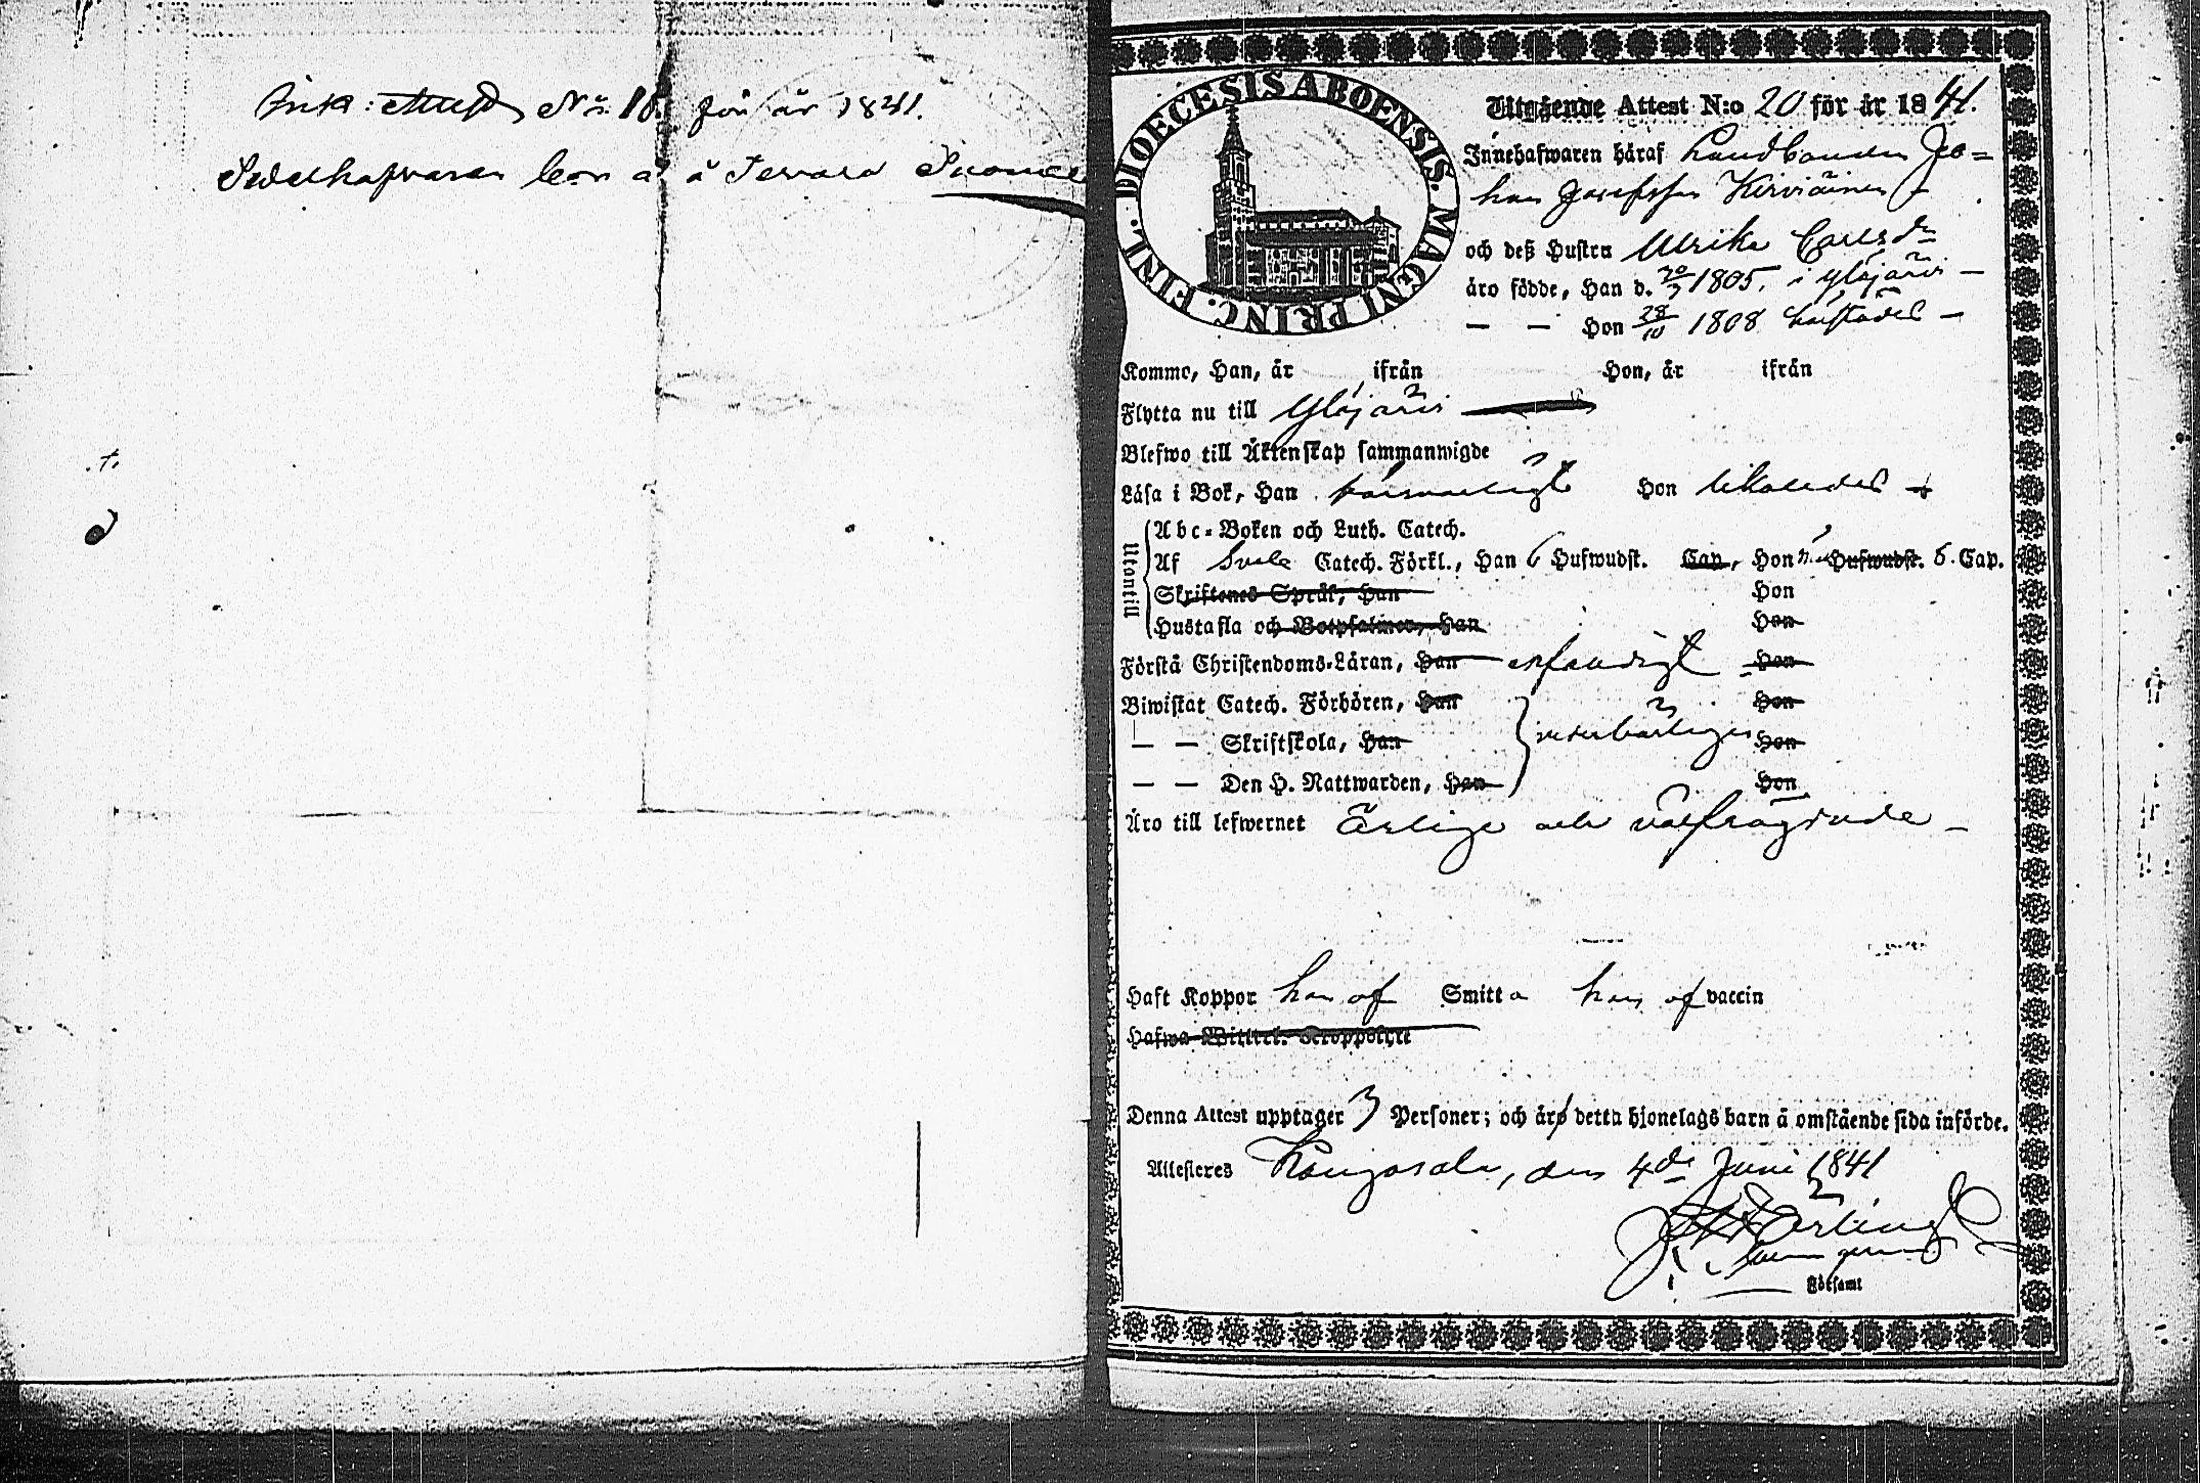 Ink: Attest No 18. för år 1841.
Sedelhafvaren bor å
DIOECESIS ABOENSIS. MAGNI PRINC. FINL.
Utgående Attest N:o 20 för år 1841.
Innehafwaren häraf Landbonden Jo=
han Josefsson Kirviäinen
och deß Hustru Ulrika Carlsdr
äro födde, Han d. 20/7 1805. i Ylöjärvi —
— — Hon 28/10 1808 härstädes —
Komme, Han, år ifrån Hon, år ifrån
Flytta nu till Ylöjärvi
Blefwo till Äktenskap sammanwigde
Läsa i Bok, Han försvarligt Hon likaledes
Utontill
Abc-Boken och Luth. Catech.
Af Svebe Catech. Förkl., Han 6 Hufwudst. Cap, Hon Hufwudst. 6. Cap.
Skriftenes Språk, Han Hon
Hustafla och Botpsalmer, Han Hon
Förstå Christendoms-Läran, Han enfaldigt Hon
Biwistat Catech. Förhören, Han Hon
— — Skriftskola, Han vederbörligen Hon
— — Den H. Nattwarden, Han Hon
Äro till lefwernet ärlige och välfrägdade —
Haft Koppor han af Smitta hon af vaccin
Hafwa
Denna Attest upptager 3 Personer; och äro detta hjonelags barn å omstående sida införde.
Attesteras Kangasala, den 4de Juni 1841
Församl